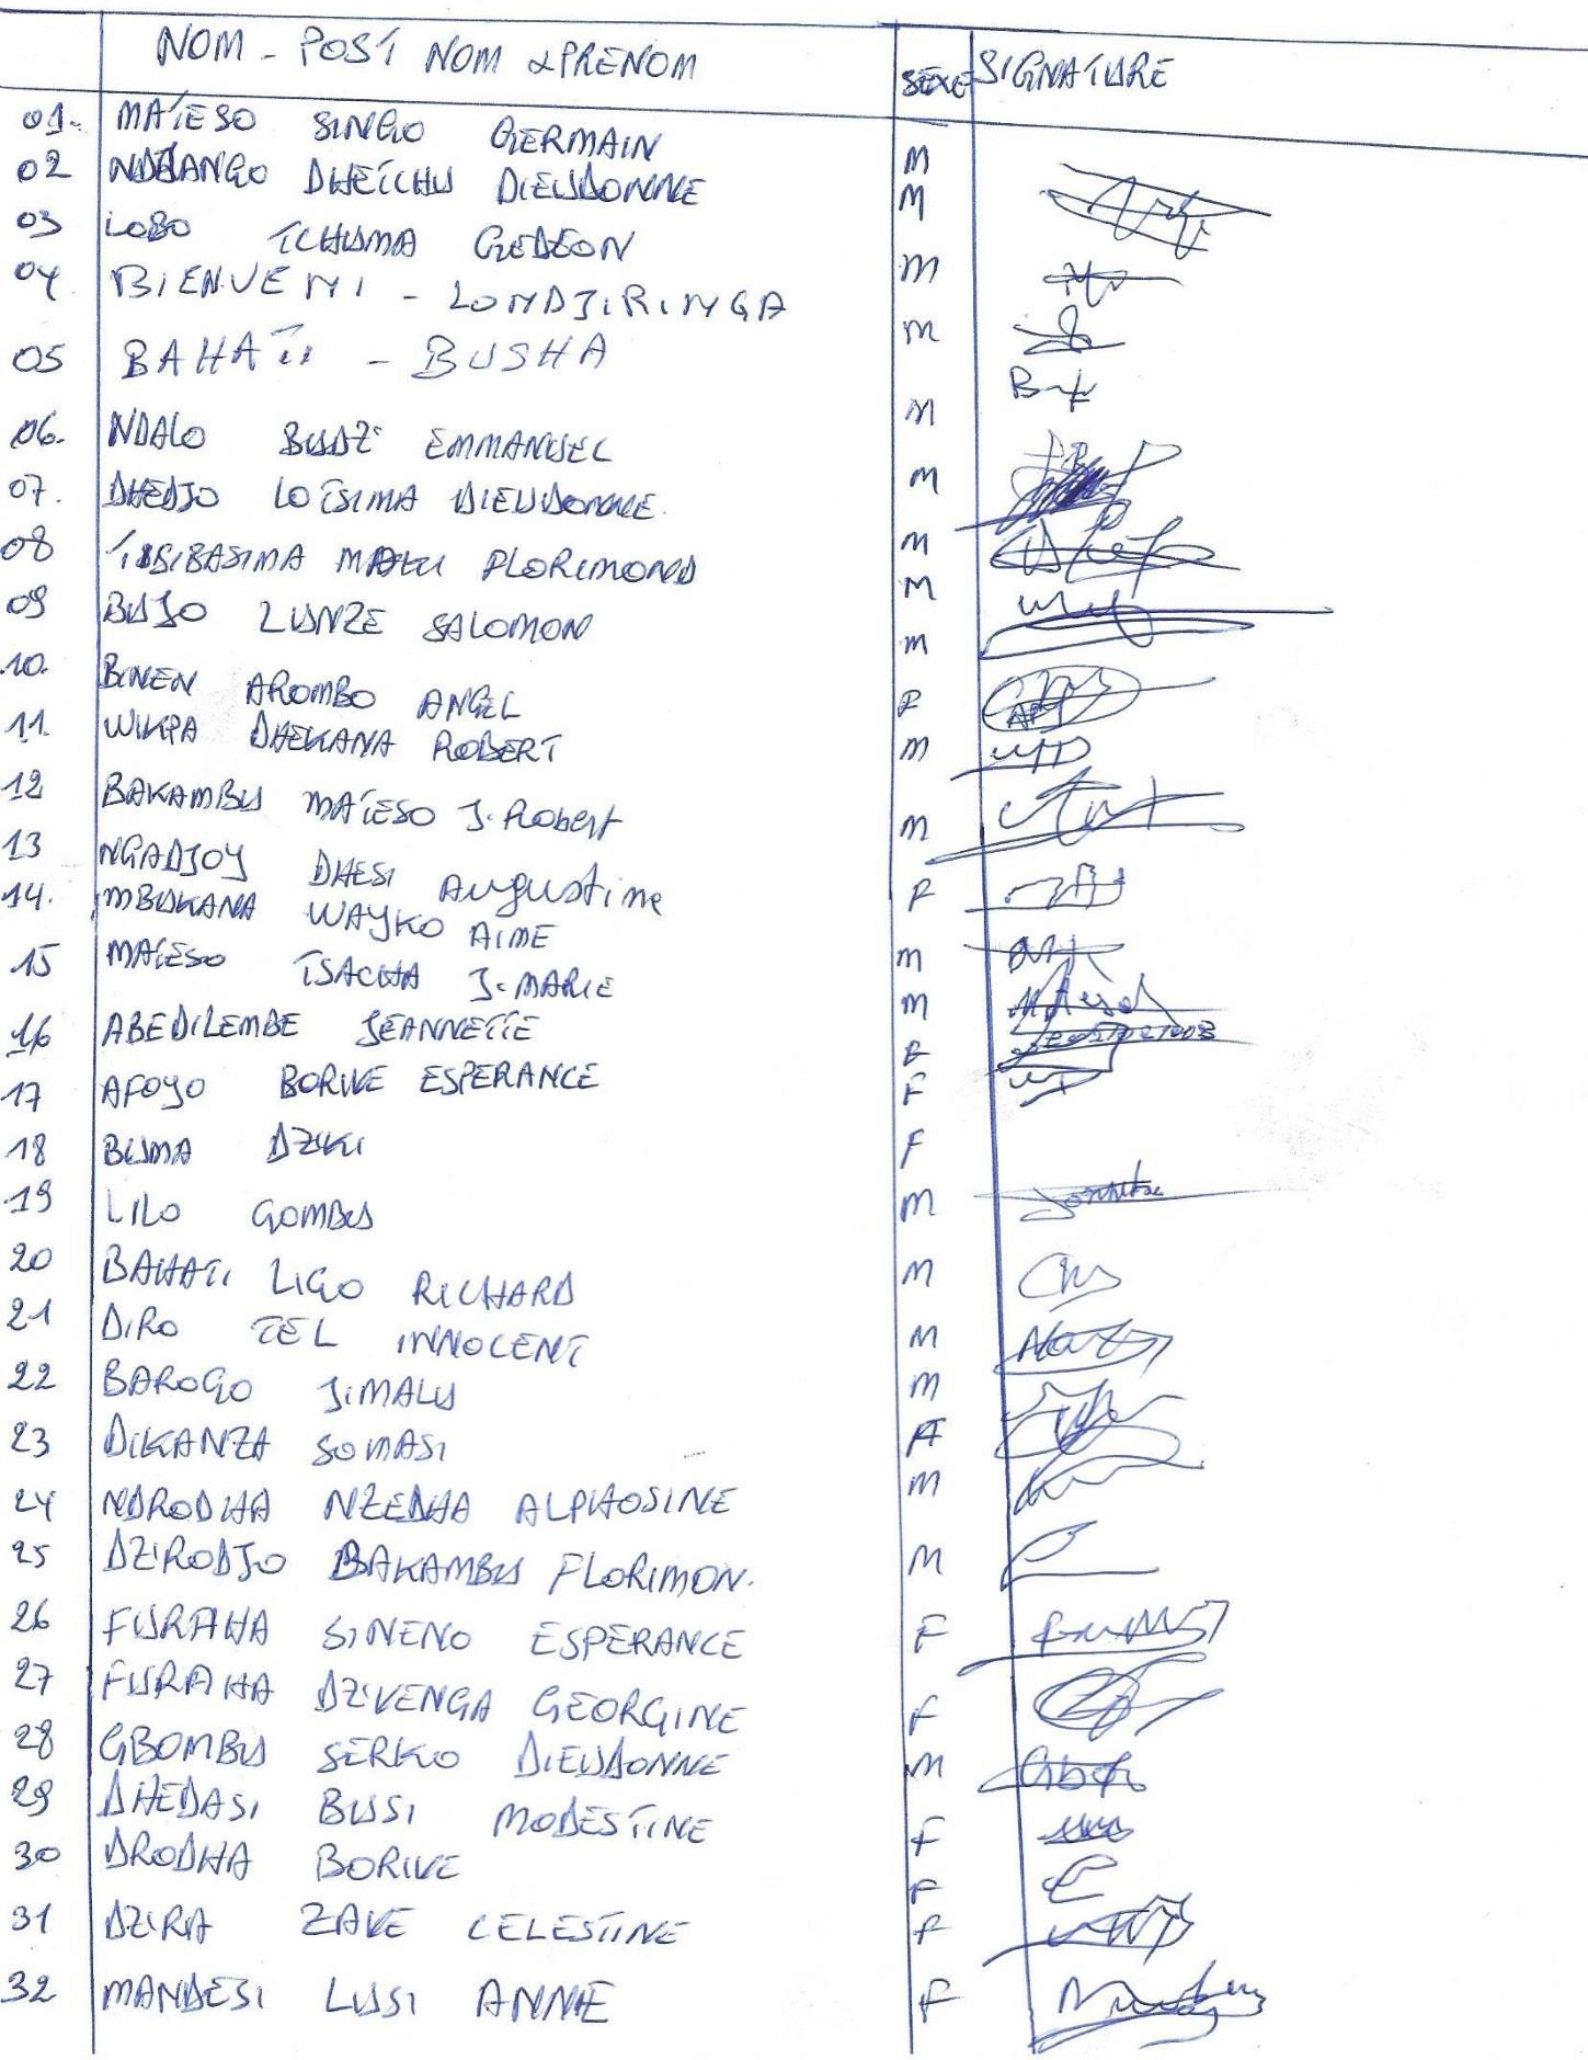 NOM - POST NOM & PRENOM SEXE SIGNATURE
01. MATESO SINGO GERMAIN M
02 DHETCHU DIEUDONNE M
03 LOBO TCHUMA GEDEON M
04 BIENVENI - LONDJIRINGA M
05 BAHATI - BUSHA M
06. NDALO BUDZI EMMANUEL M
07. DHEDJO LOTSIMA DIEUDONNE M
08 FLORIMOND M
09 BUJO LUNZE SALOMON M
10. BINEN AROMBO ANGEL F
11. WIKPA DHEKANA ROBERT M
12 BAKAMBU MATESO J. Robert M
13 NGADJOY DHESI Augustine F
14. MBUKANA WAYKO AIME M
15 MATESO TSACHA J. MARIE M
16 ABEDILEMBE JEANNETTE F
17 AFOYO BORIVE ESPERANCE F
18 BUMA DZIKI F
19 LILO GOMBU M
20 BAHATI LIGO RICHARD M
21 DIRO TEL INNOCENT M
22 BAROGO JIMALU M
23 DIKANZA SOMASI F
24 NDRODHA NZEDHA ALPHOSINE M
25 DZIRODJO BAKAMBU FLORIMON. M
26 FURAHA SINENO ESPERANCE F
27 FURAHA DZIVENGA GEORGINE F
28 GBOMBU SERKO DIEUDONNE M
29 DHEDASI BUSI MODESTINE F
30 DRODHA BORIVE F
31 DZIRA ZAVE CELESTINE F
32 MANDESI LUSI ANNIE F